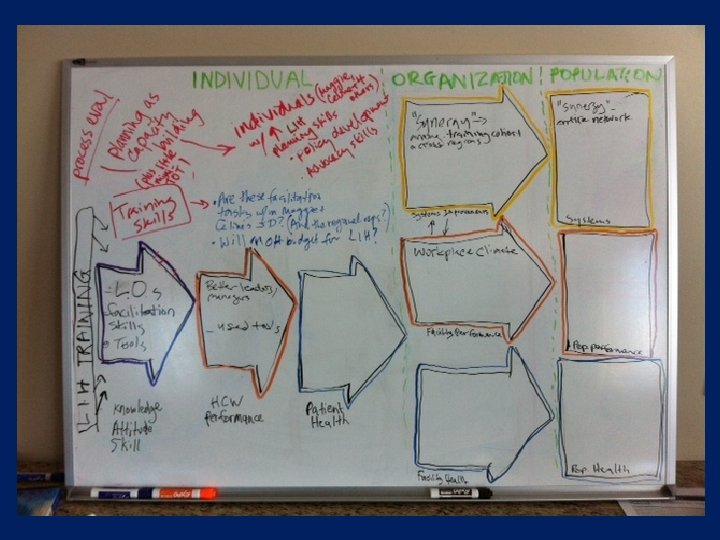 INDIVIDUAL
ORGANIZATION
POPULATION
process eval
planning as
capacity
building
(plus little
TOT)
Individuals (Maggie,
w/ ↑ LIH
planning skills
• Policy development
• Advocacy skills
Training
Skills
• Are these facilitation
Celines JD?
• Will MOH budget for LIH?
LIH TRAINING
- L.O.s
- facilitation
skills
• Tools
Knowledge
Attitude
Skill
Better leaders/
managers
- used tools
HCW
Performance
Patient
Health
"Synergy" →
training cohort
across regions
Systems Improvements
Workplace Climate
Facility Performance
Facility Health
"Synergy" -
network
Systems
Pop. performance
Pop. Health